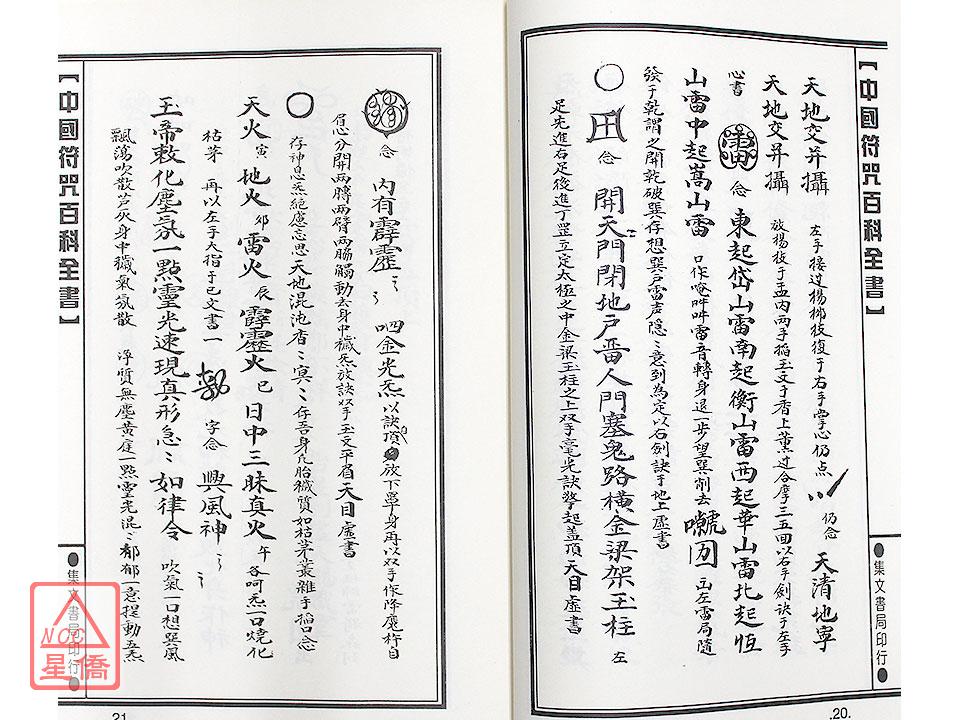 【中國符咒百科全書】
天地交并攝 左手接过楊柳枝復于右手掌心仍点 仍念 天清地寧
天地交并攝 放楊枝于盂内两手搯玉文于香上薰过合摩三五回以右手剑诀于左手
心書 念 東起岱山雷南起衡山雷西起華山雷北起恆
山雷中起嵩山雷 口作唵吽吽雷音轉身退一步望巽削去 囫 出左雷局随
發于乾謂之開乾破巽存想巽户雷声隐〻意到為定以右剑訣于地上虚書
○ 念 開天門閉地户畨人門塞鬼路橫金梁架玉柱 左
足先進右足後進丁罡立定太极之中金梁玉柱之上双手毫光訣擎起盖頂天目虚書
集文書局印行
.20.
念 内有霹靂〻〻 呬金光炁以訣頂放下單身再以双手作降魔杵自
眉心分開两膊两臂两腸觸動去身中穢炁放訣双手玉文平眉天目虚書
○ 存神息炁絶慮忘思天地混沌杳〻冥〻存吾身凡胎穢質如枯茅叢雜手搯口念
天火寅 地火卯 雷火辰 霹靂火巳 日中三昧真火午 各呵炁一口燒化
枯茅 再以左手大指于巳文書一 字念 興風神〻〻
玉帝敕化塵氛一點靈光速現真形急〻如律令 吹氣一口想巽風
飄蕩吹散芦灰身中穢氣氛散 浮質無塵黄庭一點靈光混〻郁郁一意提動五炁
【中國符咒百科全書】
集文書局印行
21
NCC
星僑